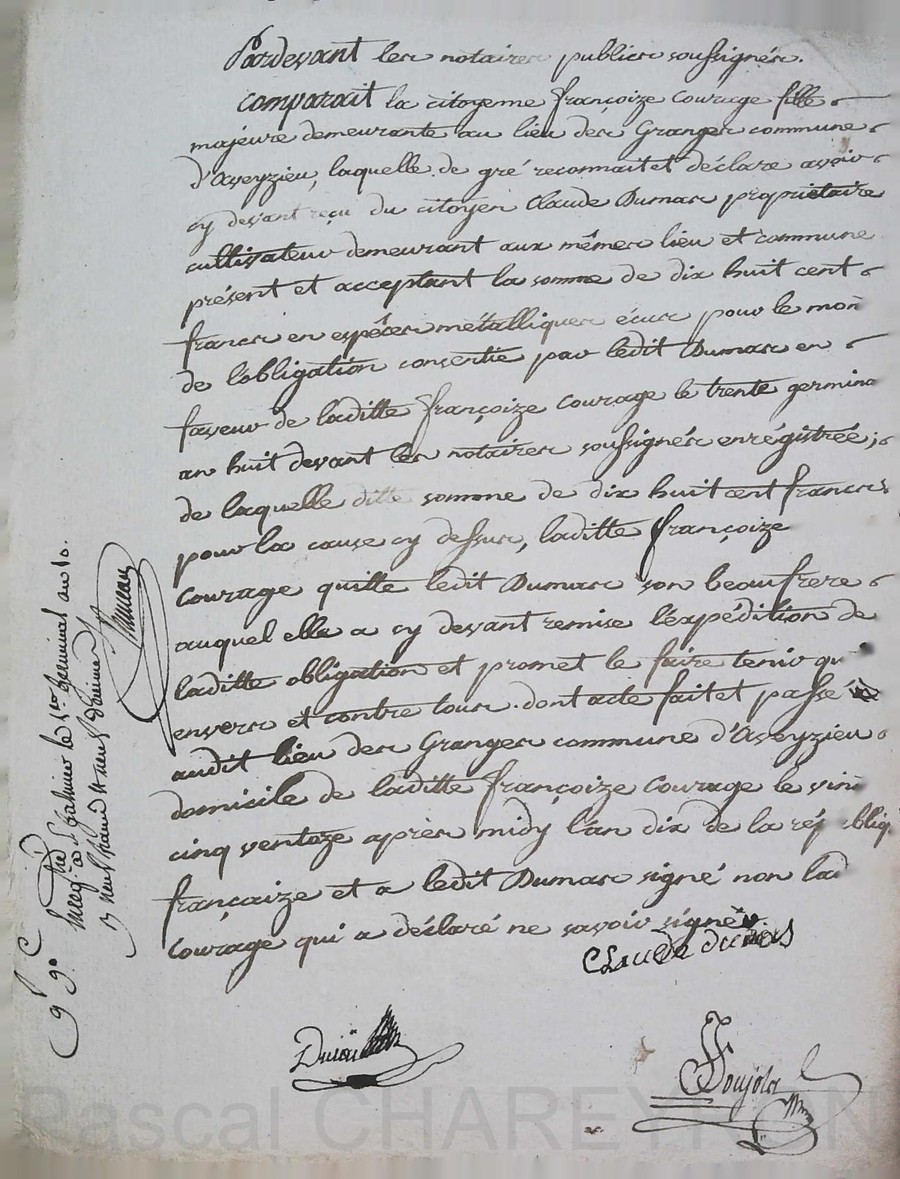 Pardevant les notaires publics soussignés.
comparait la citoyenne françoize Courage fille
majeure demeurante au lieu des Granges commune
d'Aveyzieu, laquelle de gré reconnait et déclare avoir
cy devant reçu du citoyen Claude Dumas propriétaire
cultivateur demeurant aux mêmes lieu et commune
présent et acceptant la somme de dix huit cent
francs en espèces métalliques écus pour le mon
de l'obligation consertie par ledit Dumas en
faveur de laditte françoize Courage le trente germina
an huit devant les notaires soussignés enrégistrée;
de laquelle ditte somme de dix huit cent francs
pour la cause cy dessus, laditte françoize
Courage quitte ledit Dumas son beaufrere
auquel ella a cy devant remise l'expédition de
laditte obligation et promet le faire tenir qu
envers et contre tous. dont acte fait et passé
audit lieu des Granges commune d'Aveyzieu
domicile de laditte françoize Courage le vin
cinq ventoze après midy l'an dix de la rép bliq
françaize et a ledit Dumas signé non lad
Courage qui a déclaré ne savoir signer
CLaude dumas
Pascal CHAREYRON
an 10.
germinal
le 1er